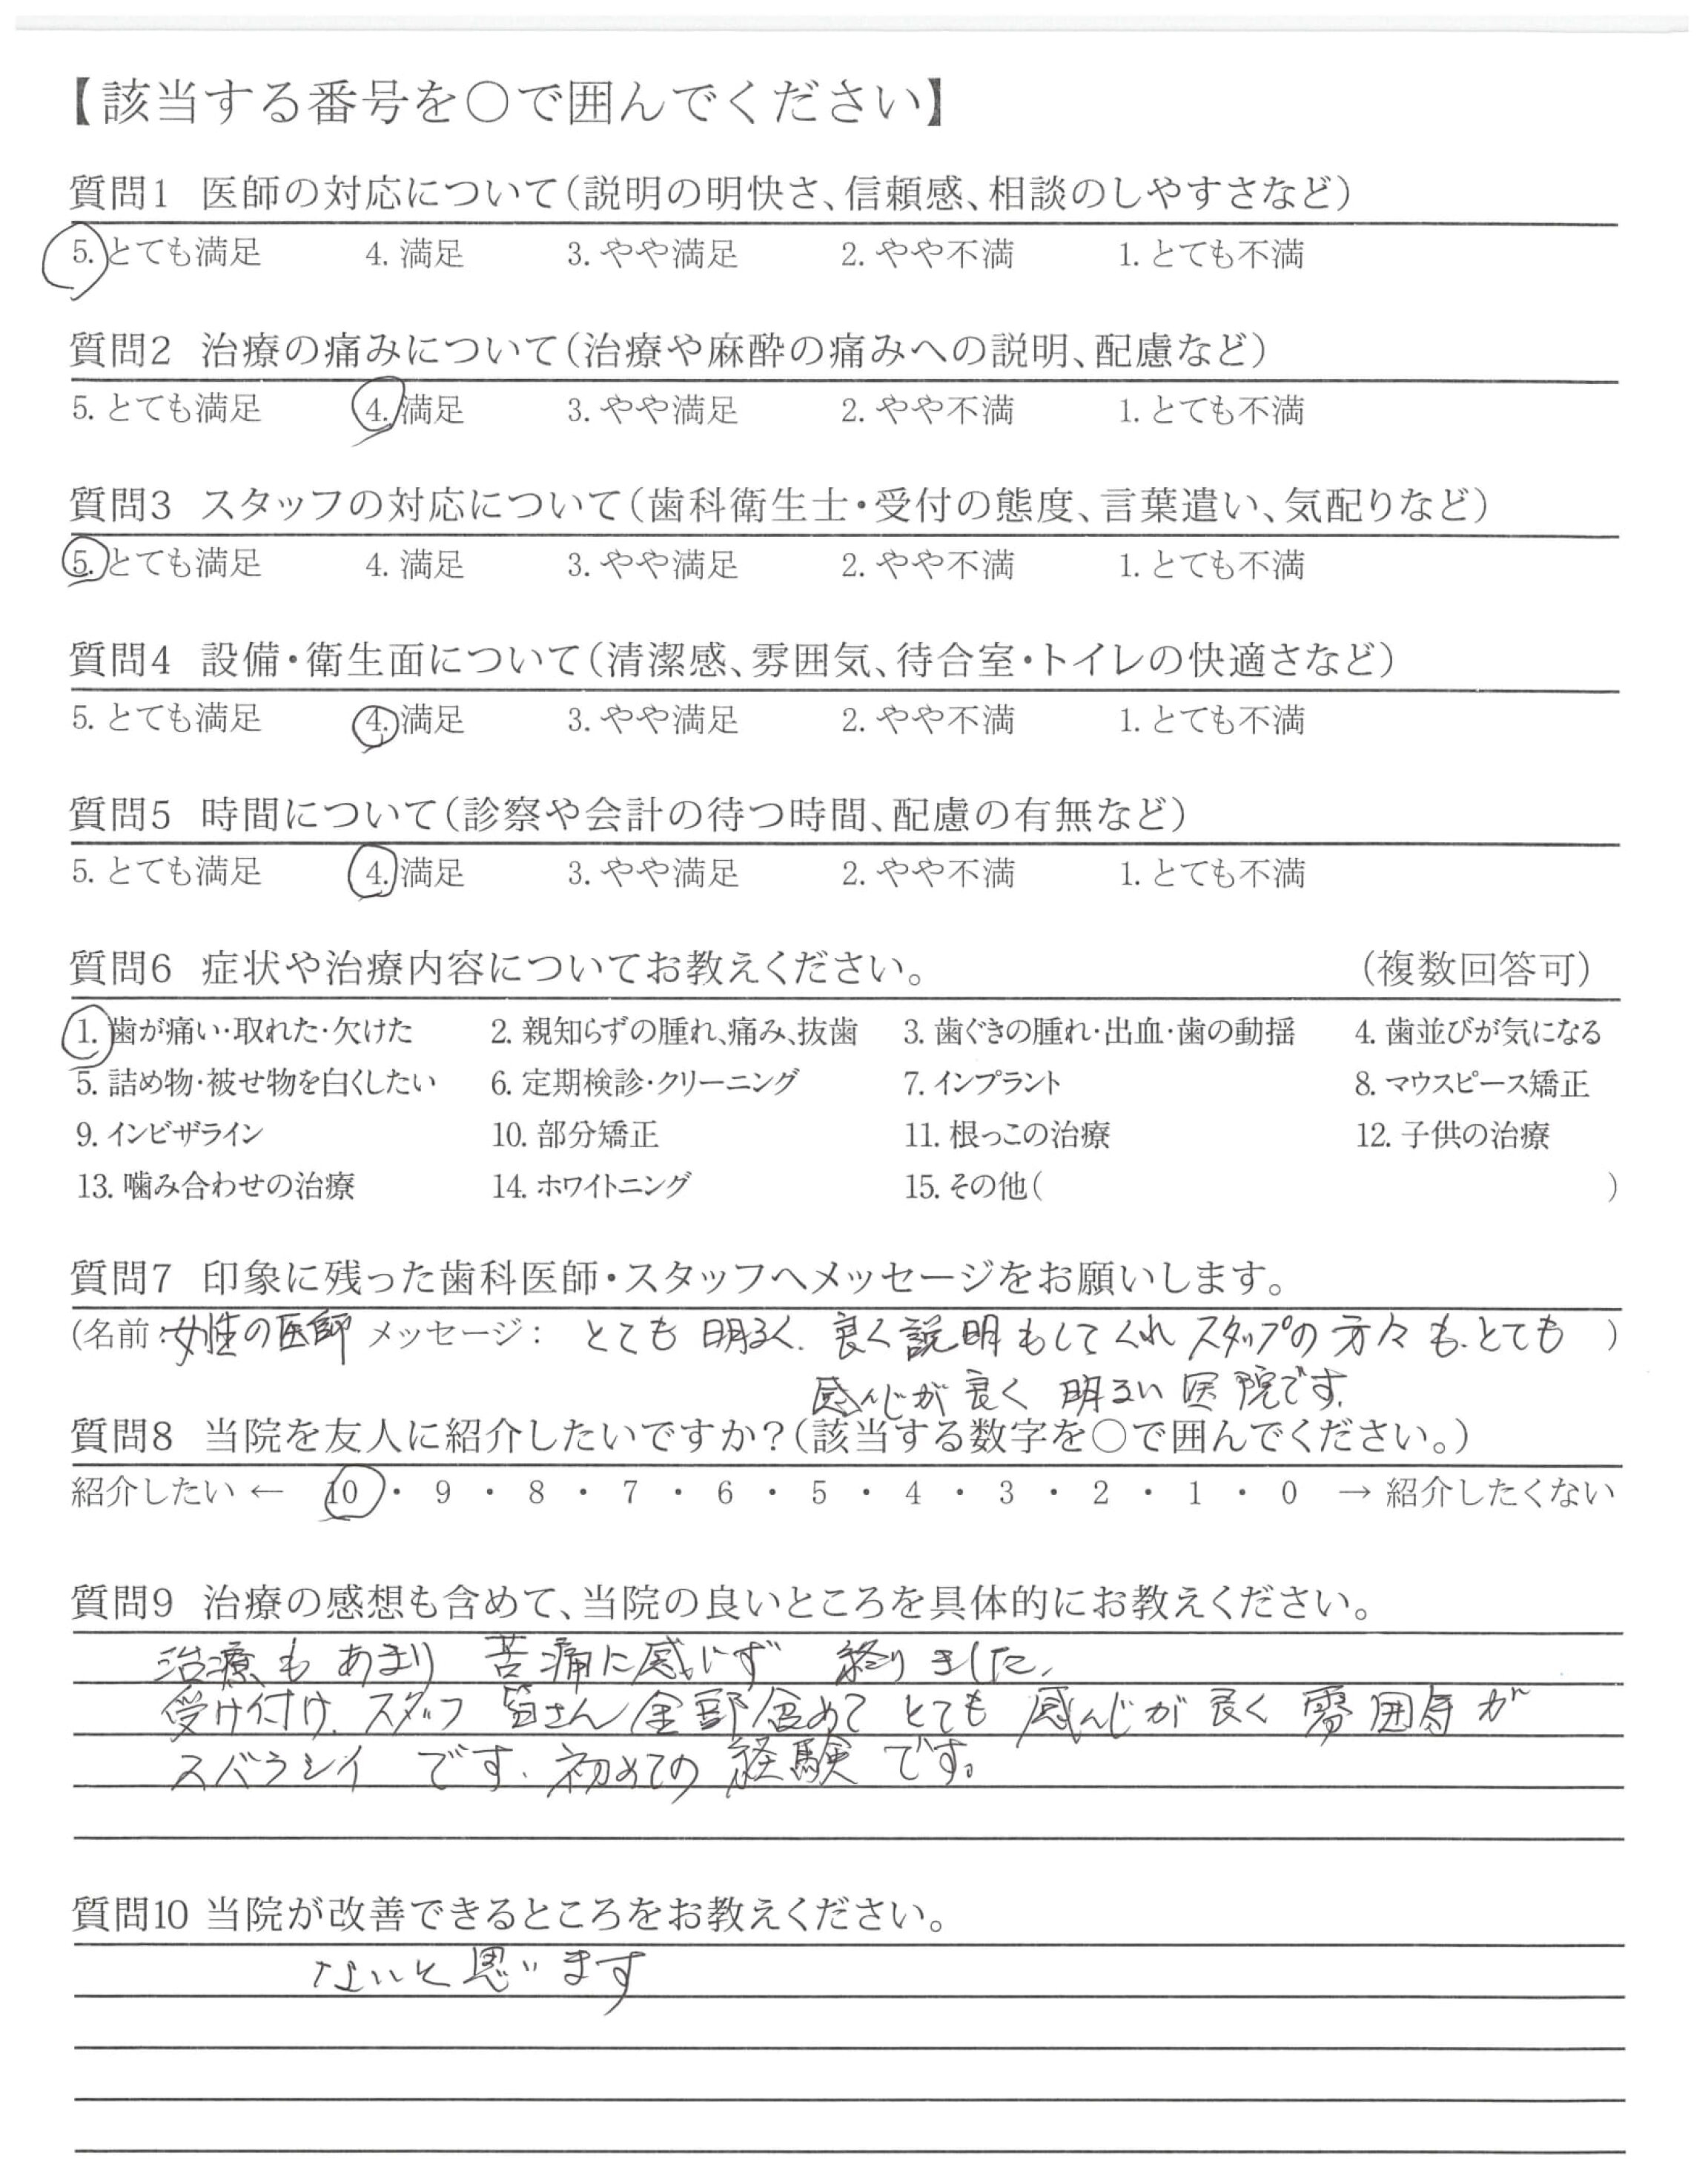 【該当する番号を○で囲んでください】
質問1 医師の対応について(説明の明快さ、信頼感、相談のしやすさなど)
5. とても満足 4. 満足 3. やや満足 2. やや不満 1. とても不満
質問2 治療の痛みについて(治療や麻酔の痛みへの説明、配慮など)
5. とても満足 4. 満足 3. やや満足 2. やや不満 1. とても不満
質問3 スタッフの対応について(歯科衛生士・受付の態度、言葉遣い、気配りなど)
5. とても満足 4. 満足 3. やや満足 2. やや不満 1. とても不満
質問4 設備・衛生面について(清潔感、雰囲気、待合室・トイレの快適さなど)
5. とても満足 4. 満足 3. やや満足 2. やや不満 1. とても不満
質問5 時間について(診察や会計の待つ時間、配慮の有無など)
5. とても満足 4. 満足 3. やや満足 2. やや不満 1. とても不満
質問6 症状や治療内容についてお教えください。 (複数回答可)
1. 歯が痛い・取れた・欠けた 2. 親知らずの腫れ、痛み、抜歯 3. 歯ぐきの腫れ・出血・歯の動揺 4. 歯並びが気になる
5. 詰め物・被せ物を白くしたい 6. 定期検診・クリーニング 7. インプラント 8. マウスピース矯正
9. インビザライン 10. 部分矯正 11. 根っこの治療 12. 子供の治療
13. 噛み合わせの治療 14. ホワイトニング 15. その他( )
質問7 印象に残った歯科医師・スタッフへメッセージをお願いします。
(名前:女性の医師 メッセージ: とても 明るく. 良く説明もしてくれ スタッフの 方々 も.とても )
感んじが 良く 明るい 医院です.
質問8 当院を友人に紹介したいですか?(該当する数字を○で囲んでください。)
紹介したい ← 10 ・ 9 ・ 8 ・ 7 ・ 6 ・ 5 ・ 4 ・ 3 ・ 2 ・ 1 ・ 0 → 紹介したくない
質問9 治療の感想も含めて、当院の良いところを具体的にお教えください。
治療も あまり 苦痛に感じず 終りました.
受け付け. スタッフ 皆さん 全部含めて とても 感んじが 良く 雰囲気が
スバラシイ です. 初めての 経験 です。
質問10 当院が改善できるところをお教えください。
ないと 思います